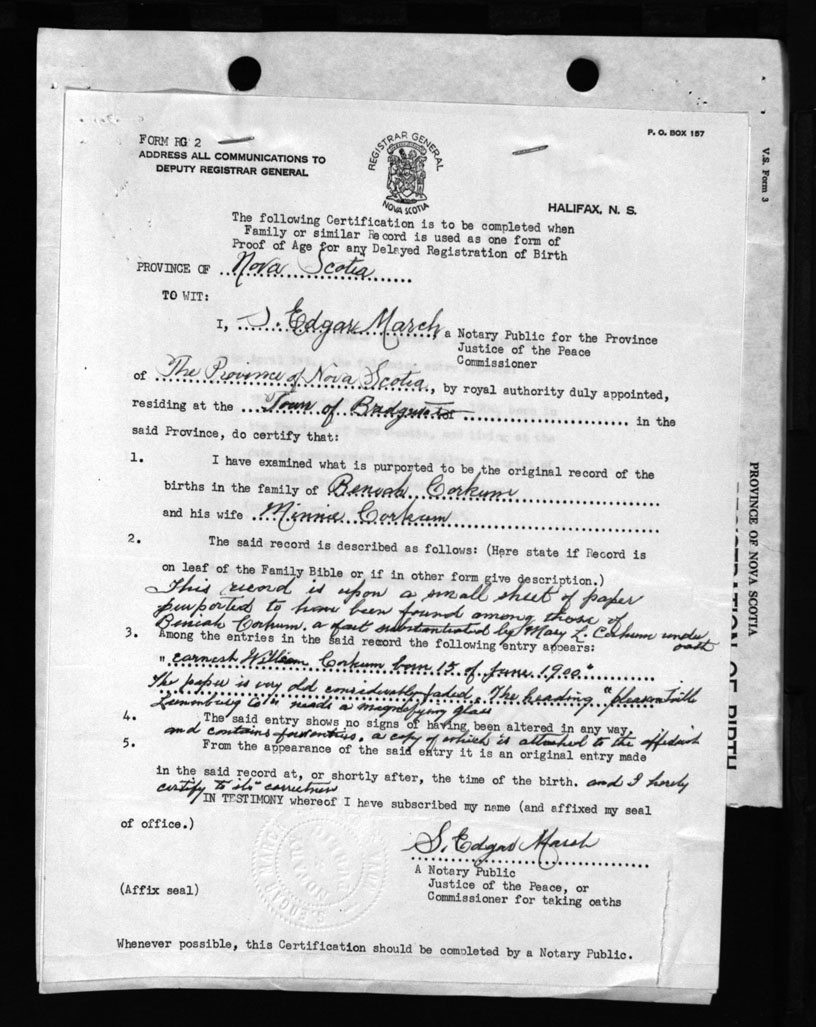 P. O. BOX 157
FORM RG 2
ADDRESS ALL COMMUNICATIONS TO
DEPUTY REGISTRAR GENERAL
REGISTRAR GENERAL
NOVA SCOTIA
HALIFAX, N. S.
The following Certification is to be completed when
Family or similar Record is used as one form of
Proof of Age for any Delayed Registration of Birth
PROVINCE OF Nova Scotia
TO WIT:
I, S. Edgar March, a Notary Public for the Province
Justice of the Peace
Commissioner
of The Province of Nova Scotia, by royal authority duly appointed,
residing at the Town of in the
said Province, do certify that:
1. I have examined what is purported to be the original record of the
births in the family of Beniah Corkum
and his wife Minnie Corkum
2. The said record is described as follows: (Here state if Record is
on leaf of the Family Bible or if in other form give description.)
This record is upon a small sheet of paper
purported to have been found among those of
Beniah Corkum, a fact substantiated by Mary L. Corkum under
oath
3. Among the entries in the said record the following entry appears:
"earnest William Corkum born 15 of June 1900."
The paper is very old considerably faded. The heading "
Lunenburg Co" needs a magnifying glass
4. The said entry shows no signs of having been altered in any way,
and contains entries, a copy of which is attached to the affidavit
5. From the appearance of the said entry it is an original entry made
in the said record at, or shortly after, the time of the birth. and I hereby
certify to its correctness
IN TESTIMONY whereof I have subscribed my name (and affixed my seal
of office.)
S. Edgar March
A Notary Public
Justice of the Peace, or
Commissioner for taking oaths
(Affix seal)
Whenever possible, this Certification should be completed by a Notary Public.
V.S. Form 3
PROVINCE OF NOVA SCOTIA
REGISTRATION OF BIRTH